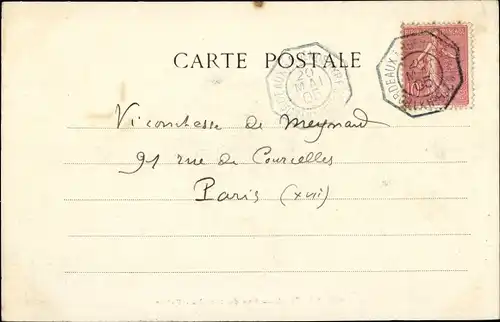 CARTE POSTALE
BORDEAUX
20
MAI
05
BORDEAUX
20
MAI
05
Vicomtesse de Meynard
91 rue de Courcelles
Paris (XVII)